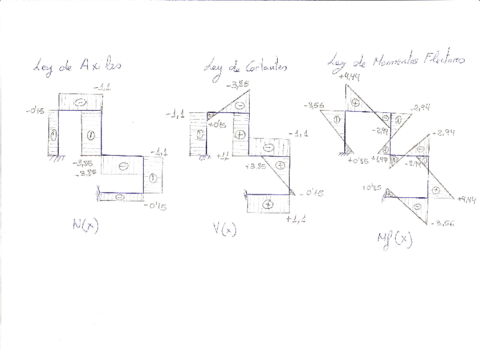 Ley de Axiles
Ley de Cortantes
Ley de Momentos Flectores
-1,1
-0'15
-3,85
+3.85
-1,1
-0'15
N(x)
-3,85
-1,1
+0'15
+1,1
-1,1
+3.85
-0'15
+1,1
V(x)
+4,44
-3,56
-2,94
-2,94
+0'35
-2,94
+4,44
+0'35
-3,56
Mf(x)